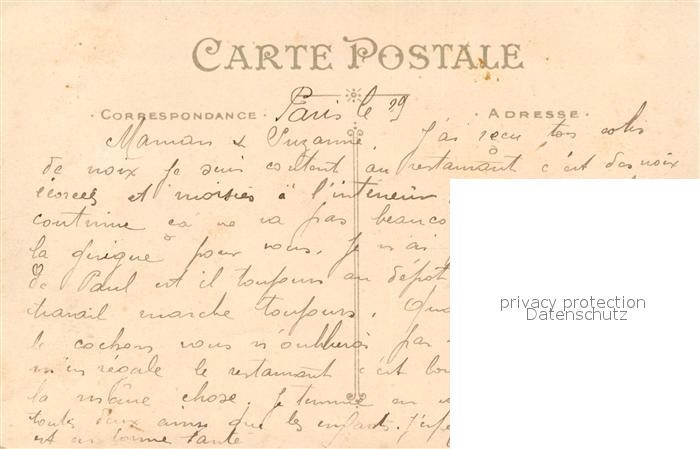 CARTE POSTALE
CORRESPONDANCE · ADRESSE
Paris le 29
Maman & Suzanne, J'ai reçu ton colis
de noix je suis content au restaurant c'est des noix
écorcées et moisies à l'intérieur
continue ça ne va pas beauco
la pour vous. Je n'ai
de Paul est il toujours au dépôt
travail marche toujours. Qua
le cochons vous n'oublierai pas
m'en régale le restaurant c'est
la même chose. Je termine en
toutes deux ainsi que les enfants. J'espè
est en bonne santé
privacy protection
Datenschutz